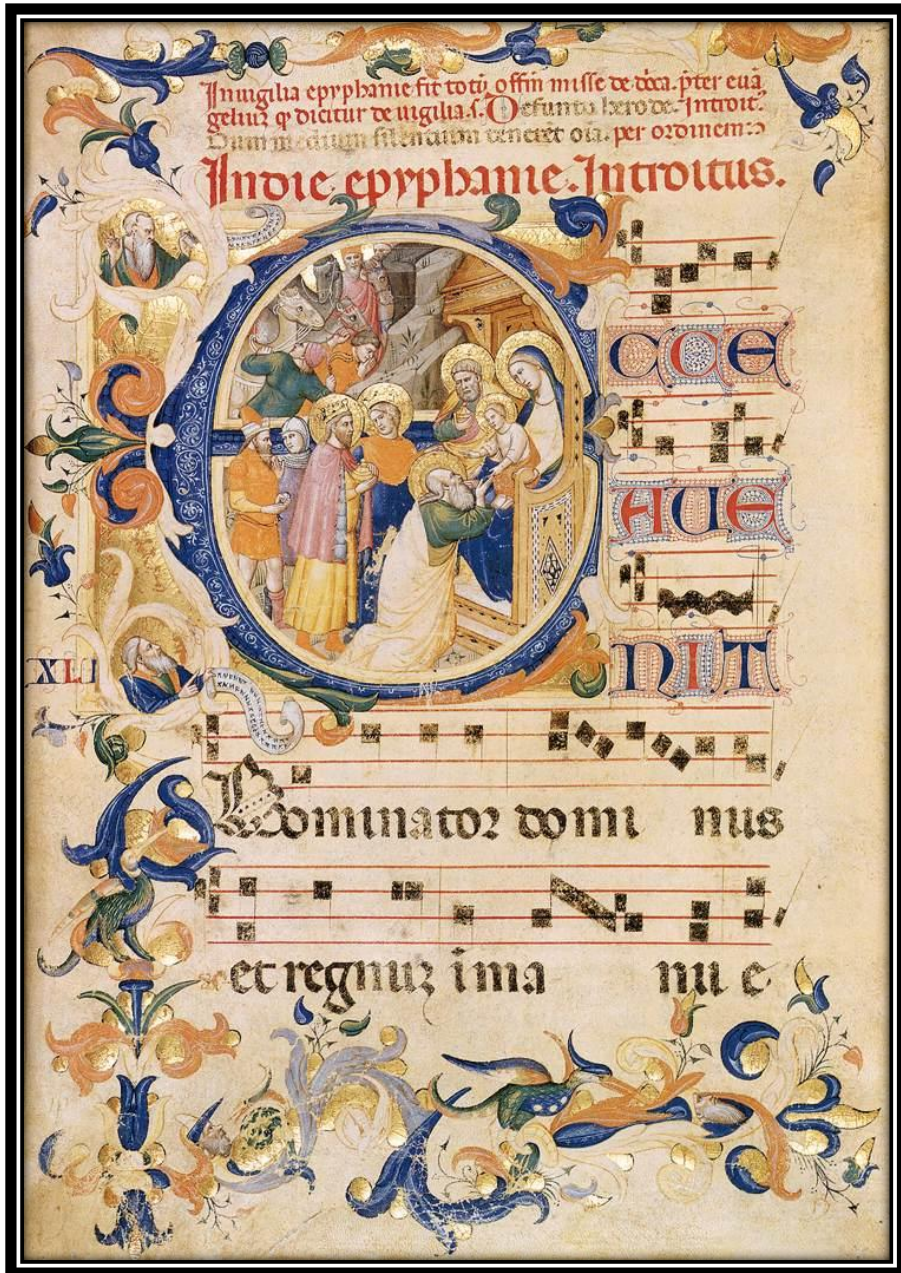 In uigilia epyphanie fit totũ offm̃ misse de dñca. p̃ter euã
geliuʒ qd̓ dicitur de uigilia.s. Defuncto herode. Introit̓.
Dum medium silentium teneret oĩa. per ordinem
In die epyphanie. Introitus.
ECCE
AUE
NIT
XLI
Dominator domi nus
et regnuʒ ĩ ma nu e